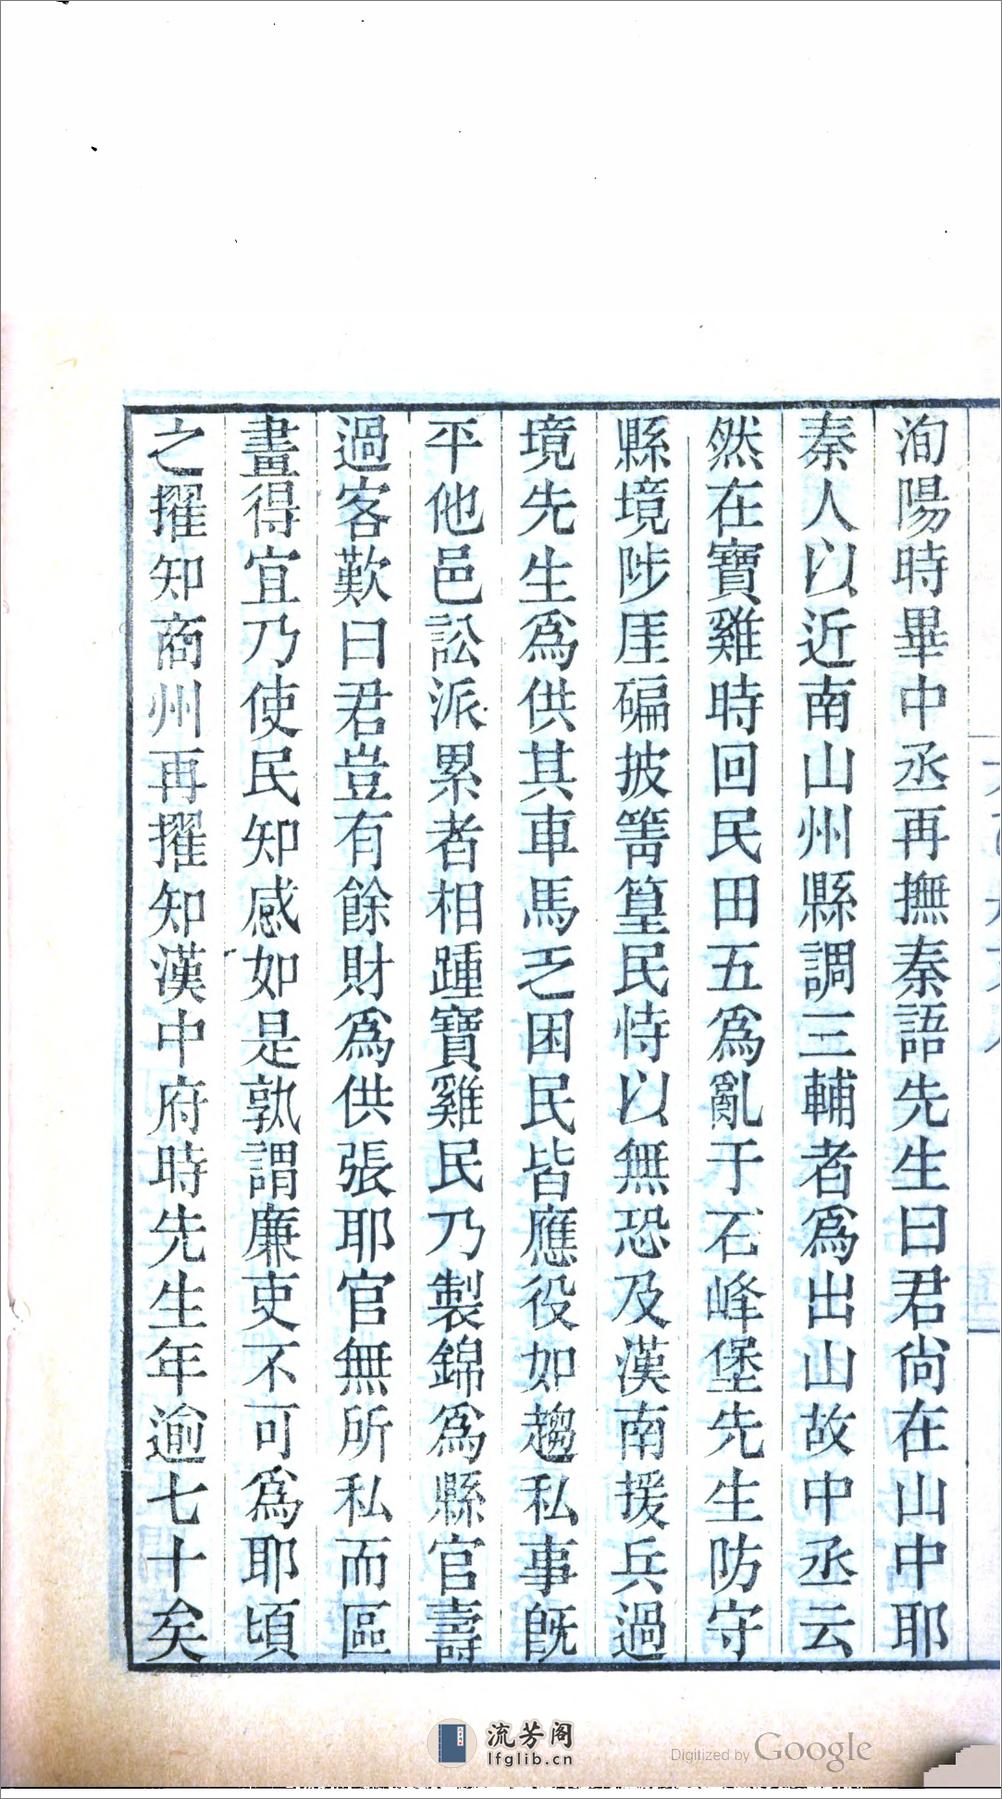 洵陽時畢中丞再撫秦語先生曰君尙在山中耶
秦人以近南山州縣調三輔者爲出山故中丞云
然在寶雞時回民田五爲亂于石峰堡先生防守
縣境陟厓碥披箐篁民恃以無恐及漢南援兵過
境先生爲供其車馬乏困民皆應役如趨私事旣
平他邑訟派累者相踵寶雞民乃製錦爲縣官壽
過客歎曰君豈有餘財爲供張耶官無所私而區
畫得宜乃使民知感如是孰謂廉吏不可爲耶頃
之擢知商州再擢知漢中府時先生年逾七十矣
流芳阁
lfglib.cn
Digitized by Google